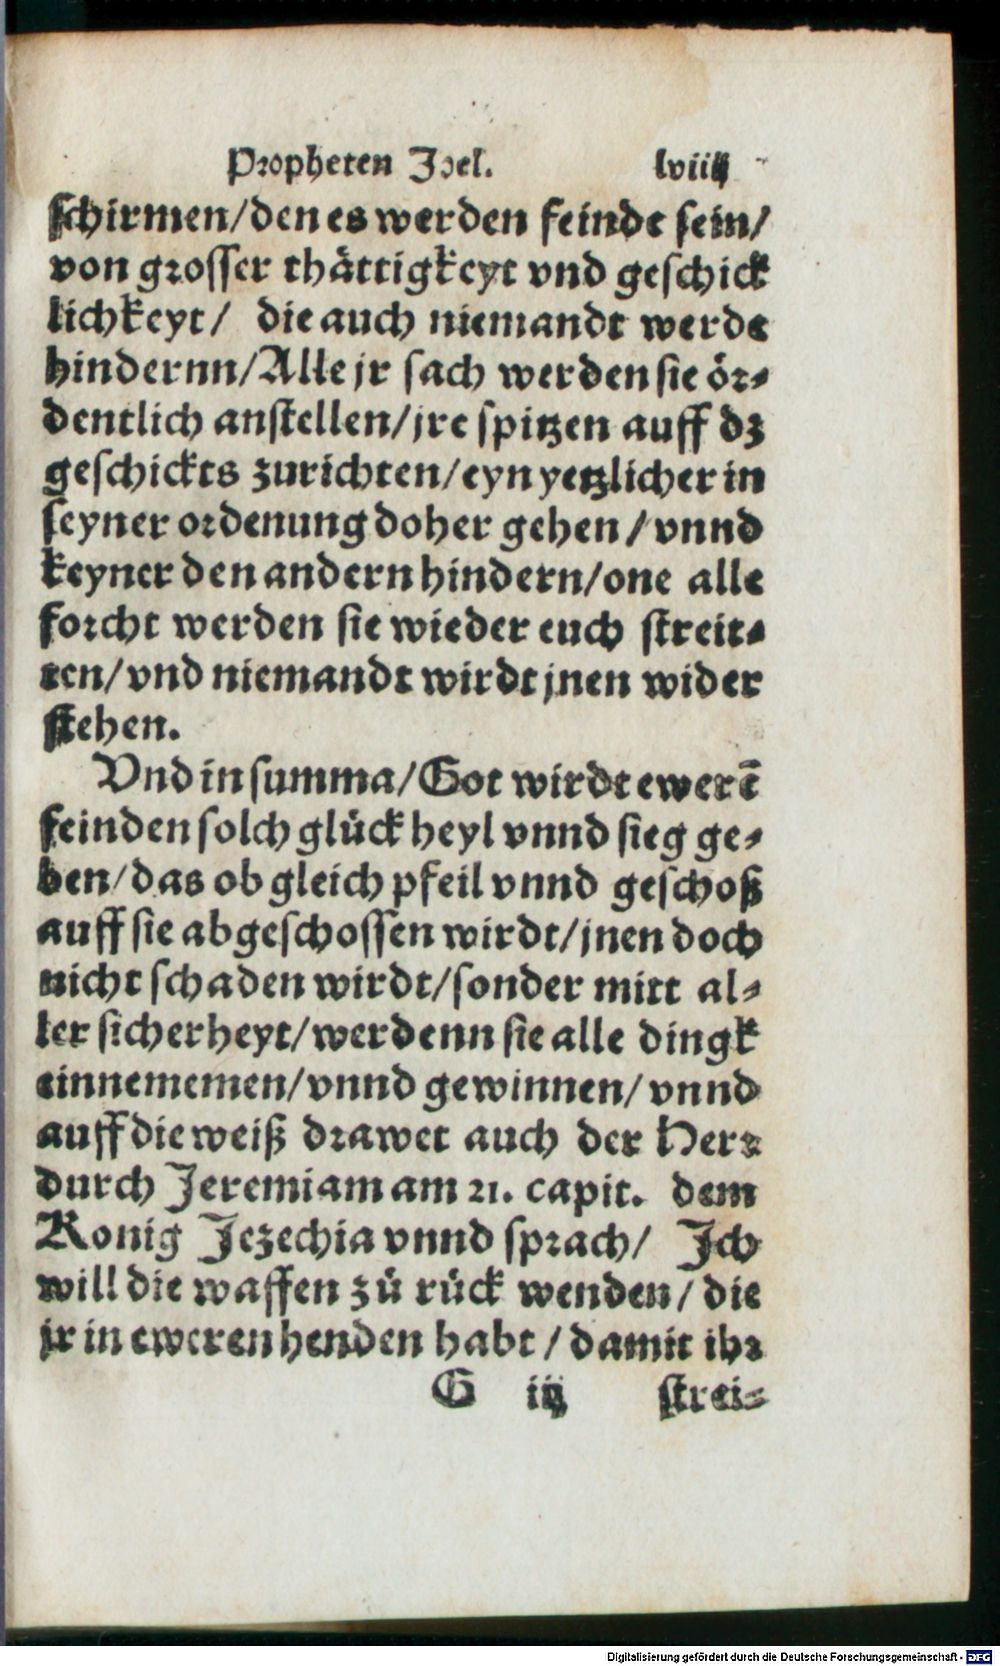 Propheten Joel. lviiij
schirmen/den es werden feinde sein/
von grosser thättigkeyt vnd geschick
lichkeyt/ die auch niemandt werde
hindernn/Alle jr sach werden sie ör⸗
dentlich anstellen/jre spitzen auff dz
geschickts zurichten/eyn yetzlicher in
seyner ordenung doher gehen/vnnd
keyner den andern hindern/one alle
forcht werden sie wieder euch streit⸗
ten/vnd niemandt wirdt jnen wider
stehen.
Vnd in summa/Got wirdt ewerē
feinden solch glück heyl vnnd sieg ge⸗
ben/das ob gleich pfeil vnnd geschoß
auff sie abgeschossen wirdt/jnen doch
nicht schaden wirdt/sonder mitt al⸗
ler sicherheyt/werdenn sie alle dingk
einnememen/vnnd gewinnen/vnnd
auff die weiß drawet auch der Herr
durch Jeremiam am 21. capit. dem
Konig Jezechia vnnd sprach/ Jch
will die waffen zů rück wenden/die
jr in eweren henden habt/damit ihr
G iij strei⸗
Digitalisierung gefördert durch die Deutsche Forschungsgemeinschaft - DFG